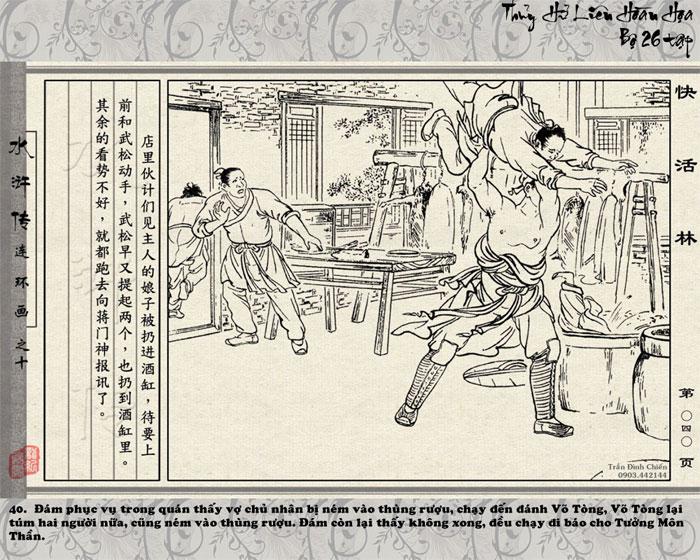 Thủy Hử Liên Hoàn Họa
Bộ 26 tập
快活林
水浒传连环画之十
店里伙计们见主人的娘子被扔进酒缸，待要上
前和武松动手，武松早又提起两个，也扔到酒缸里。
其余的看势不好，就都跑去向蒋门神报讯了。
第〇四〇页
Trần Đình Chiến
0903.442144
40. Đám phục vụ trong quán thấy vợ chủ nhân bị ném vào thùng rượu, chạy đến đánh Võ Tòng, Võ Tòng lại
túm hai người nữa, cũng ném vào thùng rượu. Đám còn lại thấy không xong, đều chạy đi báo cho Tưởng Môn
Thần.